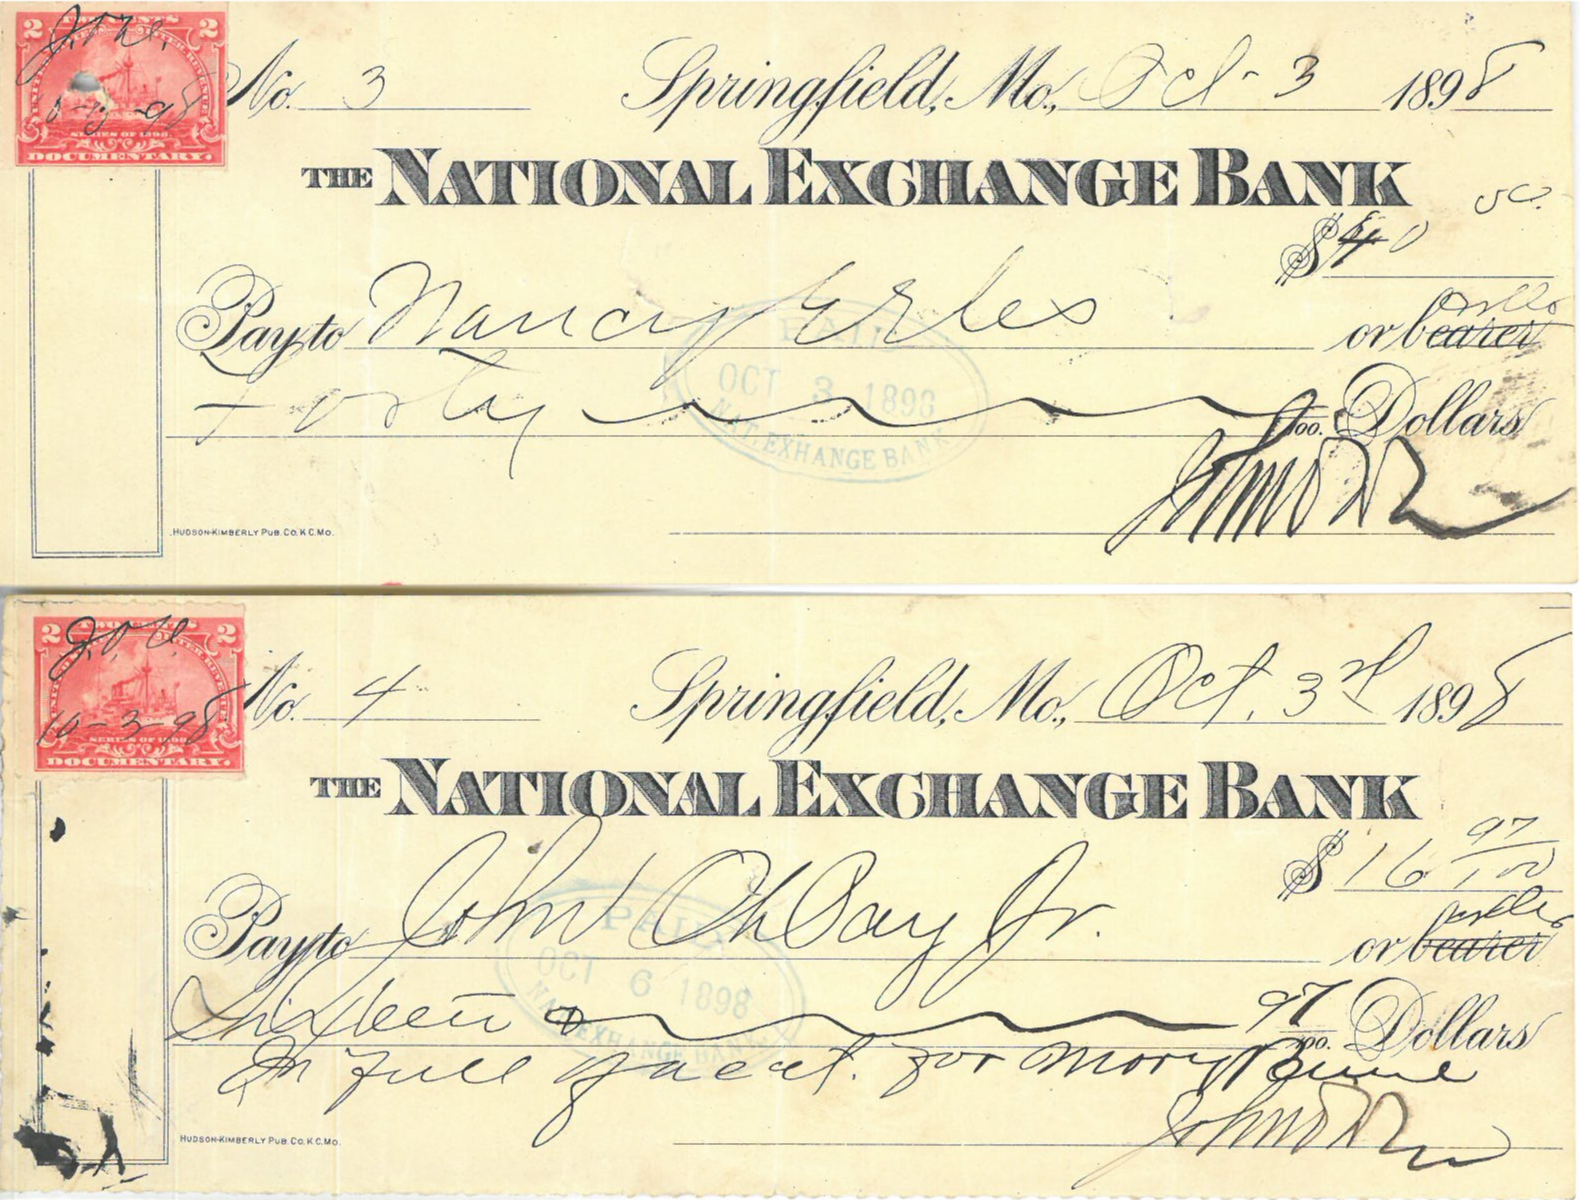 2 TWO CENTS 2
UNITED STATES INTER. REVENUE
10-3-98
SERIES OF 1898.
DOCUMENTARY.
No. 3 Springfield, Mo., Oct - 3 1898
THE NATIONAL EXCHANGE BANK
$40
Pay to Nancy or bearer
Forty 100. Dollars
PAID
OCT 3 1898
NAT. EXHANGE BANK
HUDSON-KIMBERLY PUB. CO. K.C. MO.
2 TWO CENTS 2
J.O.
10-3-98
SERIES OF 1898
DOCUMENTARY.
No. 4 Springfield, Mo., Oct. 3rd 1898
THE NATIONAL EXCHANGE BANK
$16 97/100
Pay to John Jr. or bearer
Sixteen 97/100. Dollars
PAID
OCT 6 1898
NAT. EXHANGE BANK
In full of acct. for
HUDSON-KIMBERLY PUB. CO. K.C. MO.